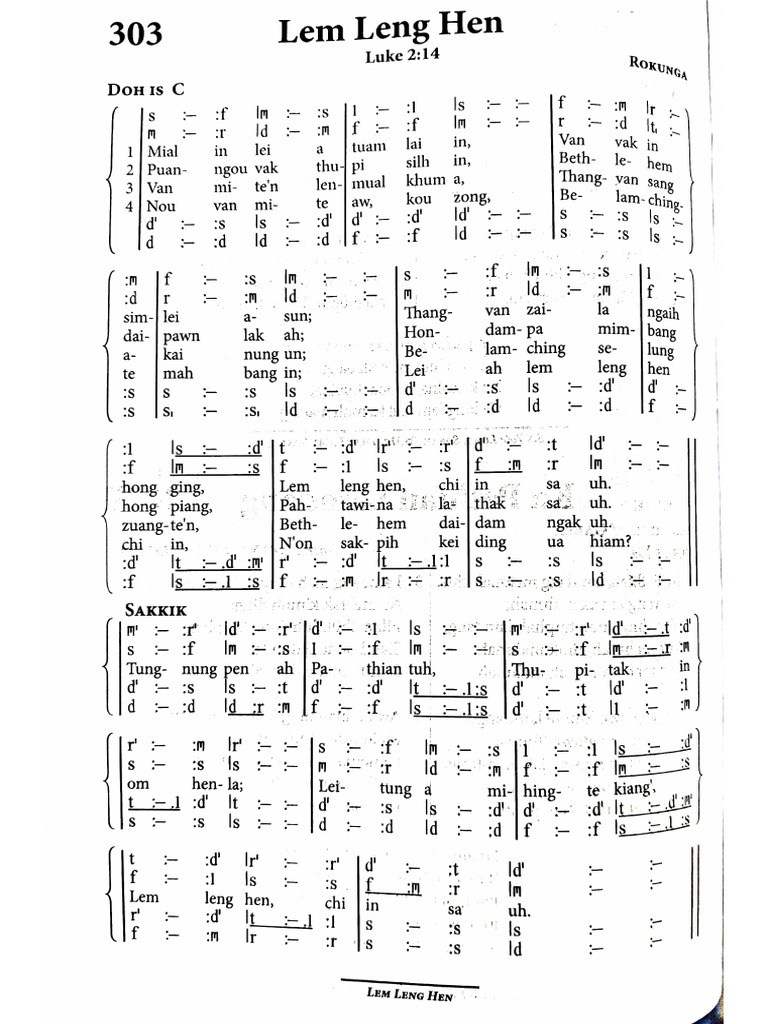 303 Lem Leng Hen
Luke 2:14
ROKUNGA
DOH IS C
s :– :f |m :– :s | l :– :l |s :– :– | f :– :m |r :–
m :– :r |d :– :m | f :– :f |m :– :– | r :– :d |t, :–
1 Mial in lei a tuam lai in, Van vak in
2 Puan- ngou vak thu- pi silh in, Beth- le- hem
3 Van mi- te'n len- mual khum a, Thang- van sang
4 Nou van mi- te aw, kou zong, Be- lam- ching-
d' :– :s |s :– :d' | d' :– :d' |d' :– :– | s :– :s |s :–
d :– :d |d :– :d | f :– :f |d :– :– | s :– :s |s :–
:m | f :– :s |m :– :– | s :– :f |m :– :s | l :–
:d | r :– :m |d :– :– | m :– :r |d :– :m | f :–
sim- lei a- sun; Thang- van zai- la ngaih
dai- pawn lak ah; Hon- dam- pa mim- bang
a- kai nung un; Be- lam- ching se- lung
te mah bang in; Lei ah lem leng hen
:s | s :– :s |s :– :– | d' :– :s |s :– :d' | d' :–
:s | s, :– :s, |d :– :– | d :– :d |d :– :d | f :–
:l |s :– :d' | t :– :d' |r' :– :r' | d' :– :t |d' :– :–
:f |m :– :s | f :– :l |s :– :s | f :m :r |m :– :–
hong ging, Lem leng hen, chi in sa uh.
hong piang, Pah- tawi-na la- thak sa uh.
zuang-te'n, Beth- le- hem dai- dam ngak uh.
chi in, N'on sak- pih kei ding ua hiam?
:d' |t :– .d' :m' | r' :– :d' |t :– .l :l | s :– :s |s :– :–
:f |s :– .l :s | f :– :m |r :– :r | s :– :s |d :– :–
SAKKIK
m' :– :r' |d' :– :r' | d' :– :l |s :– :– | m' :– :r' |d' :– .t :d'
s :– :f |m :– :s | l :– :f |m :– :– | s :– :f |m :– .r :m
Tung- nung pen ah Pa- thian tuh, Thu- pi- tak in
d' :– :s |s :– :t | d' :– :d' |t :– .l :s | d' :– :t |d' :– :l
d :– :d |d :r :m | f :– :f |s :– .l :s | d' :– :t |l :– :m
r' :– :m |r' :– :– | s :– :f |m :– :s | l :– :l |s :– :d'
s :– :s |s :– :– | m :– :r |d :– :m | f :– :f |m :– :s
om hen- la; Lei- tung a mi- hing- te kiang',
t :– .l :d' |t :– :– | d' :– :s |s :– :d' | d' :– :d' |t :– .d' :m'
s :– :s |s :– :– | d :– :d |d :– :d | f :– :f |s :– .l :s
t :– :d' |r' :– :r' | d' :– :t |d' :– :–
f :– :l |s :– :s | f :m :r |m :– :–
Lem leng hen, chi in sa uh.
r' :– :d' |t :– .l :l | s :– :s |s :– :–
f :– :m |r :– :r | s :– :s |d :– :–
LEM LENG HEN